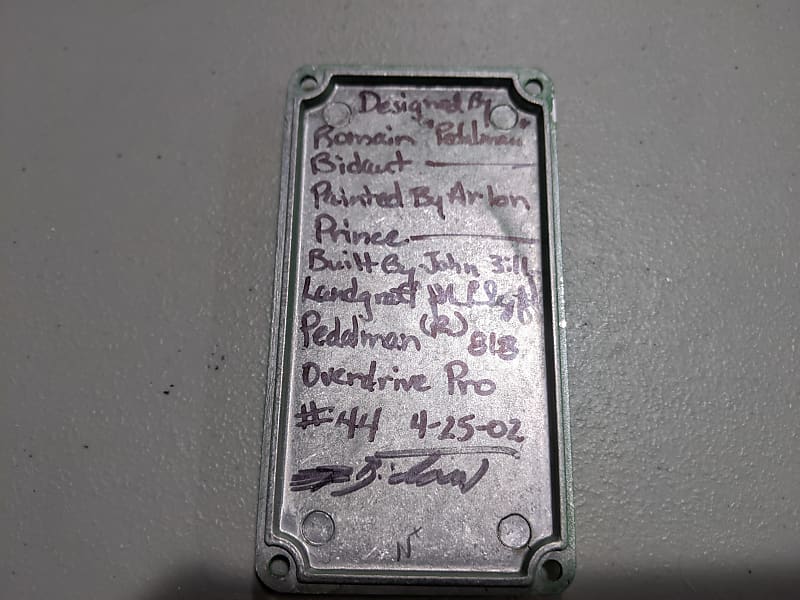 Designed By
Romain "Pedalman"
Bidaut
Painted By Arlon
Prince
Built By John Bill
Landgraff
Pedalman (R) 818
Overdrive Pro
#44 4-25-02
N